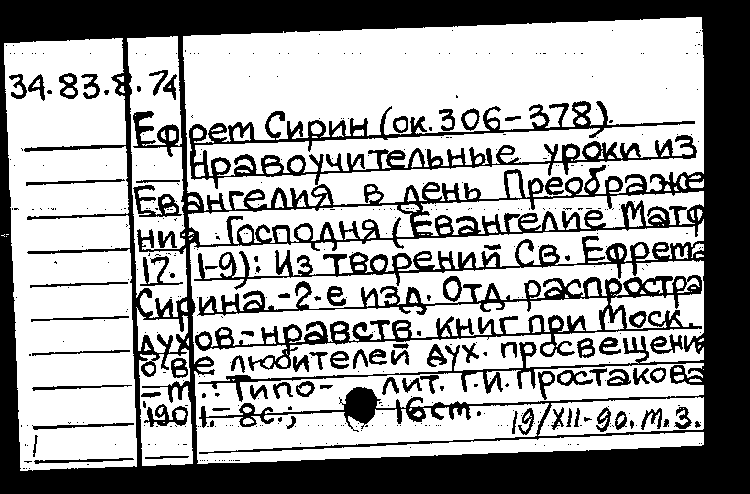 34.83.8.74
Ефрет Сирин (ок. 306-378).
Нравоучительные уроки из
Евангелия в день Преображе
ния Господня (Евангелие Матф
17. 1-9): Из творений Св. Ефрета
Сирина.-2-е изд. Отд. распростра
духов.-нравств. книг при Моск.
о-ве любителей дух. просвещени
-т.: Типо- лит. Г.И. Простакова
1901.- 8с.; 16ст.
19/XII-90. М.З.